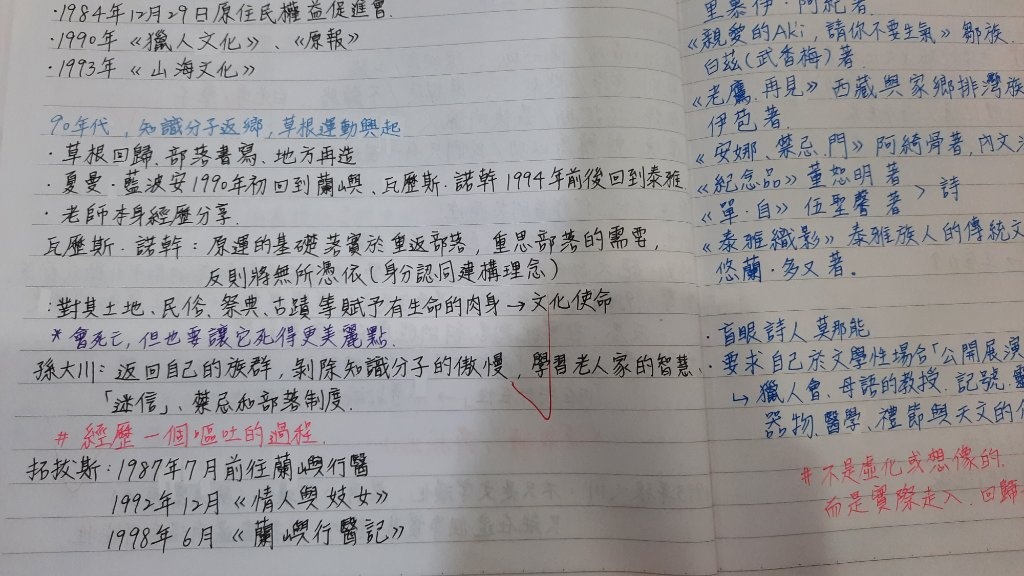 ·1984年12月29日原住民權益促進會.
·1990年《獵人文化》、《原報》
·1993年《山海文化》
90年代，知識分子返鄉，草根運動興起
·草根回歸、部落書寫、地方再造
·夏曼·藍波安1990年初回到蘭嶼、瓦歷斯·諾幹1994年前後回到泰雅
·老師本身經歷分享.
瓦歷斯·諾幹：原運的基礎落實於重返部落，重思部落的需要，
反則將無所憑依(身分認同建構理念)
:對其土地、民俗、祭典、古蹟等賦予有生命的肉身→文化使命
*會死亡，但也要讓它死得更美麗點.
孫大川：返回自己的族群，剝除知識分子的傲慢，學習老人家的智慧、
「迷信」、禁忌和部落制度.
#經歷一個嘔吐的過程.
拓拔斯：1987年7月前往蘭嶼行醫
1992年12月《情人與妓女》
1998年6月《蘭嶼行醫記》
里慕伊·阿紀著
《親愛的Aki，請你不要生氣》鄒族.
白茲(武香梅)著.
《老鷹，再見》西藏與家鄉排灣族
伊苞著.
《安娜、禁忌、門》阿綺骨著，內文
《紀念品》董恕明著
《單·自》伍聖馨著 > 詩
《泰雅織影》泰雅族人的傳統文
悠蘭·多又著。
·盲眼詩人莫那能
·要求自己於文學性場合「公開展演
↳獵人會、母語的教授、記號、靈
器物、醫學、禮節與天文的
#不是虛化或想像的.
而是實際走入、回歸